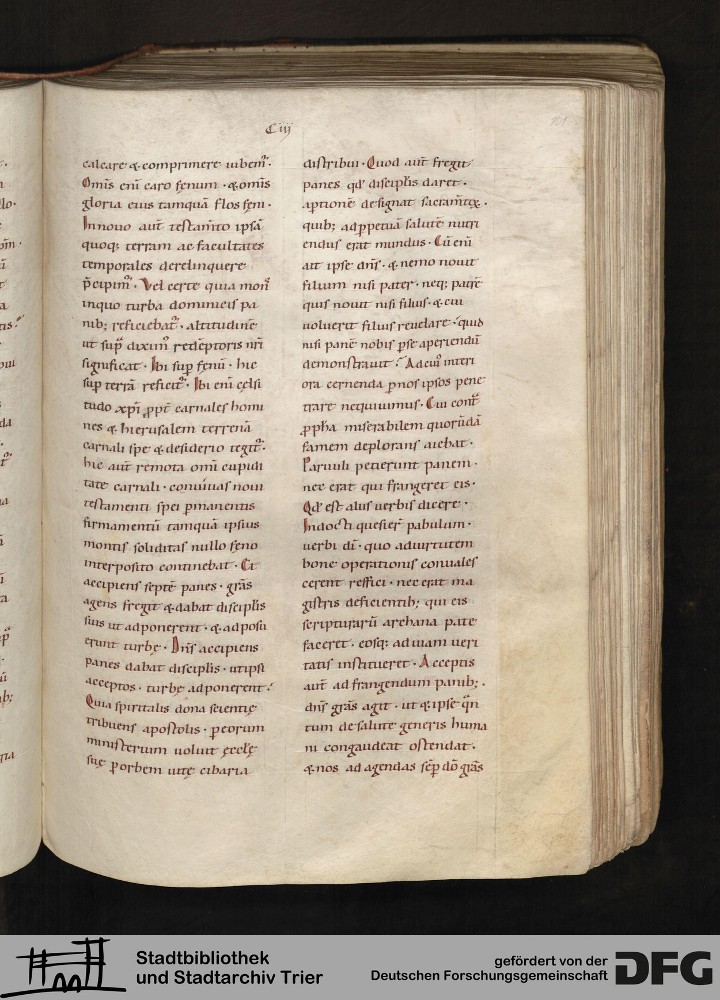 Ciij
calcare & comprimere iubem̄.
Om̄is eni̅ caro fęnum · & om̄is
gloria eius tamquā flos fęni ·
In nouo aut̄ testam̄to ipsā
quoq; terram ac facultates
temporales derelinquere
p̄cipim᷒. Vel certe quia mon̄
in quo turba dominicis pa
nib; reficiebat᷒ · altitudinē
ut sup̄ diximꝰ redēptoris n̄ri
significat · Ibi sup̄ fenū · hic
sup̄ terrā reficit᷒ · Ibi eni̅ celsi
tudo xp̄i ꝓpt̄ carnales homi
nes & hierusalem terrenā
carnali spe & desiderio tegit᷒ ·
hic aut̄ remota om̄i cupidi
tate carnali · conuiuas noui
testamenti spei ꝑmanentis
firmamentū tamquā ipsius
montis soliditas nullo feno
interposito continebat · Et
accipiens septē panes · gr̄as
agens fregit & dabat discipl̄is
suis ut adponerent · & adposu
erunt turbę · Dn̄s accipiens
panes dabat discipl̄is · ut ipsi
acceptos · turbę adponerent ·
Quia spiritalis dona scientię
tribuens apostolis · ꝑ eorum
ministerium uoluit ęcclę
suę ꝑ orbem uitę cibaria
distribui · Quod aut̄ fregit
panes qd̄ discipl̄is daret ·
aptionē designat sacram̄toꝝ ·
quib; ad ꝑpetuā salutē nutri
endus erat mundus · Cū eni̅
ait ipse dn̄s · & nemo nouit
filium nisi pater · neq; patrē
quis nouit nisi filius · & cui
uoluerit filius reuelare · quid
nisi panē nobis ꝑ se aperiendū
demonstrauit? Ad cuiꝰ interi
ora cernenda ꝑ nos ipsos pene
trare nequiuimus · Cui cont̄
ꝓpha miserabilem quorūdā
famem deplorans aiebat ·
Paruuli petierunt panem ·
nec erat qui frangeret eis ·
Qd̄ est aliis uerbis dicere ·
Indocti quesier̄ pabulum ·
uerbi dī · quo ad uirtutem
bonę operationis conuales
cerent reffici · nec erat ma
gistris deficientib; qui eis
scripturarū archana pate
faceret · eosq: ad uiam ueri
tatis institueret · Acceptis
aut̄ ad frangendum panib; ·
dn̄s gr̄as agit · ut & ipse q̄n
tum de salute generis huma
ni congaudeat ostendat ·
& nos ad agendas sēp̄ dō gr̄as
Stadtbibliothek
und Stadtarchiv Trier
gefördert von der
Deutschen Forschungsgemeinschaft
DFG